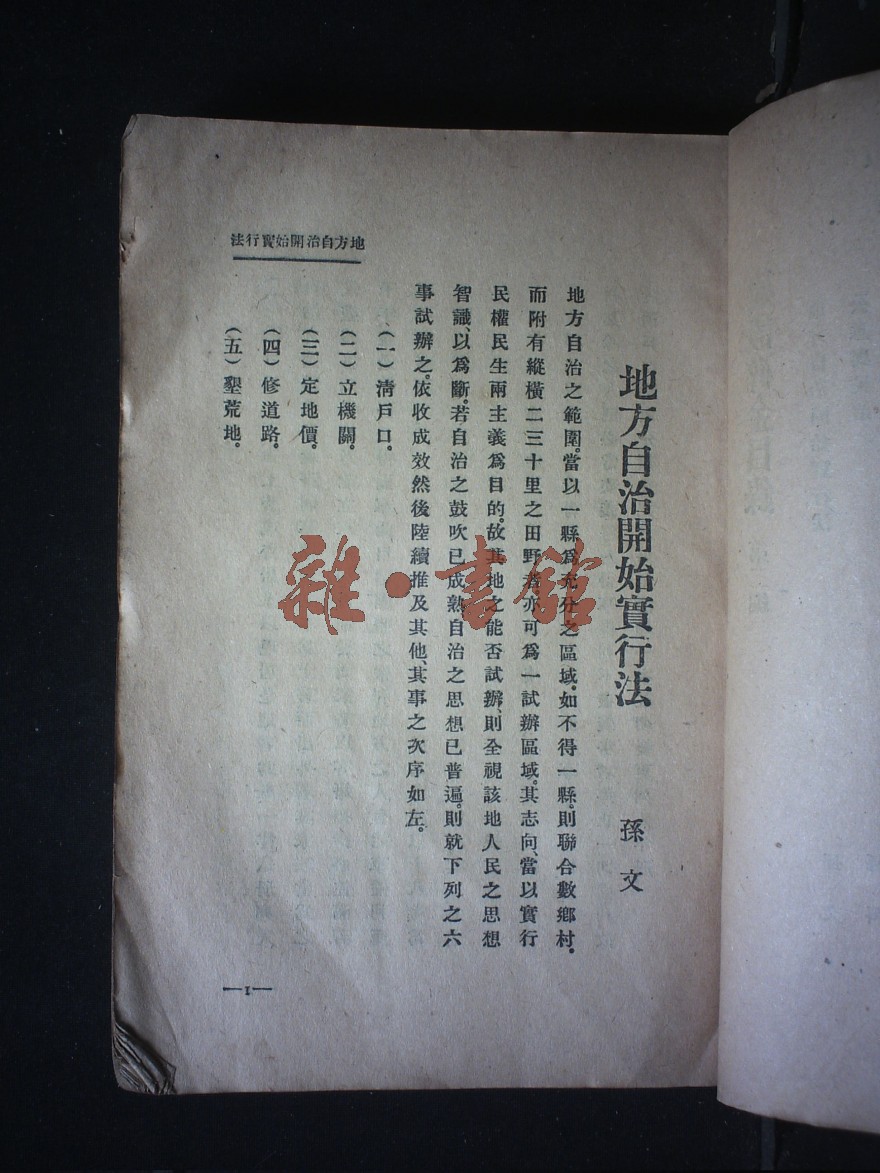 地方自治開始實行法
地方自治開始實行法
孫文
地方自治之範圍。當以一縣爲充分之區域。如不得一縣。則聯合數鄉村。
而附有縱橫二三十里之田野者、亦可爲一試辦區域。其志向、當以實行
民權民生兩主義爲目的。故其地之能否試辦、則全視該地人民之思想
智識、以爲斷。若自治之鼓吹已成熟、自治之思想已普遍。則就下列之六
事試辦之。依收成效然後陸續推及其他、其事之次序如左。
(一)清戶口。
(二)立機關。
(三)定地價。
(四)修道路。
(五)墾荒地。
—1—
雜·書館